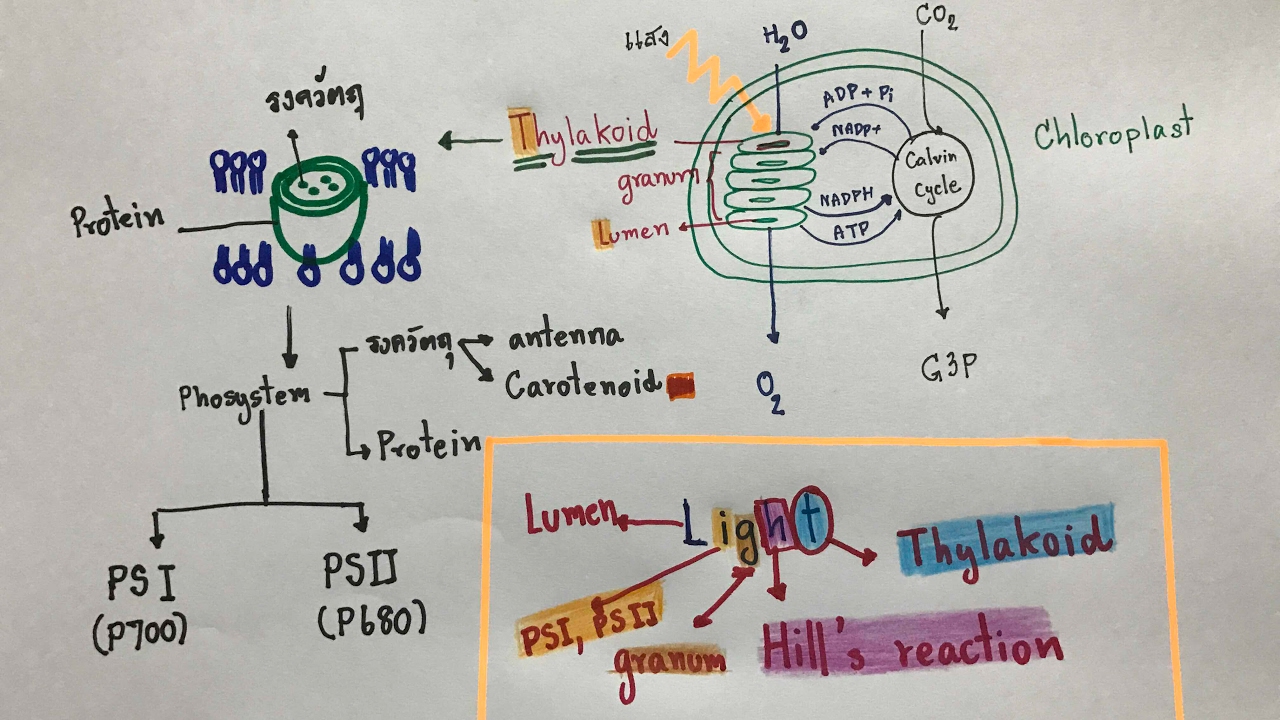 รงควัตถุ
Protein
Thylakoid
granum
Lumen
แสง
H₂O
CO₂
ADP + Pi
NADP+
Calvin
Cycle
NADPH
ATP
Chloroplast
O₂
G3P
Phosystem
รงควัตถุ
antenna
Carotenoid
Protein
PSI
(P700)
PSII
(P680)
Lumen
Light
Thylakoid
PSI, PSII
granum
Hill's reaction